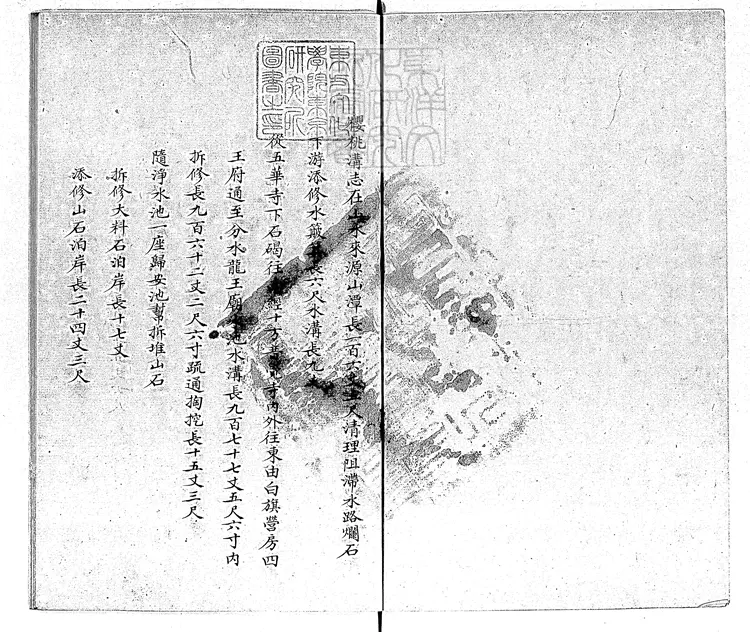 櫻桃溝志在山水來源山潭長一百六丈五尺清理阻滯水路爛石
下游添修水簸箕長六尺水溝長九丈
從五華寺下石碣往經十方寺內外往東由白旗營房四
王府通至分水龍王廟池水溝長九百七十七丈五尺六寸內
拆修長九百六十二丈二尺六寸疏通掏挖長十五丈三尺
隨淨水池一座歸安池幫拆堆山石
拆修大料石泊岸長十七丈
添修山石泊岸長二十四丈三尺
東方文化
學院東京
研究所
圖書之印